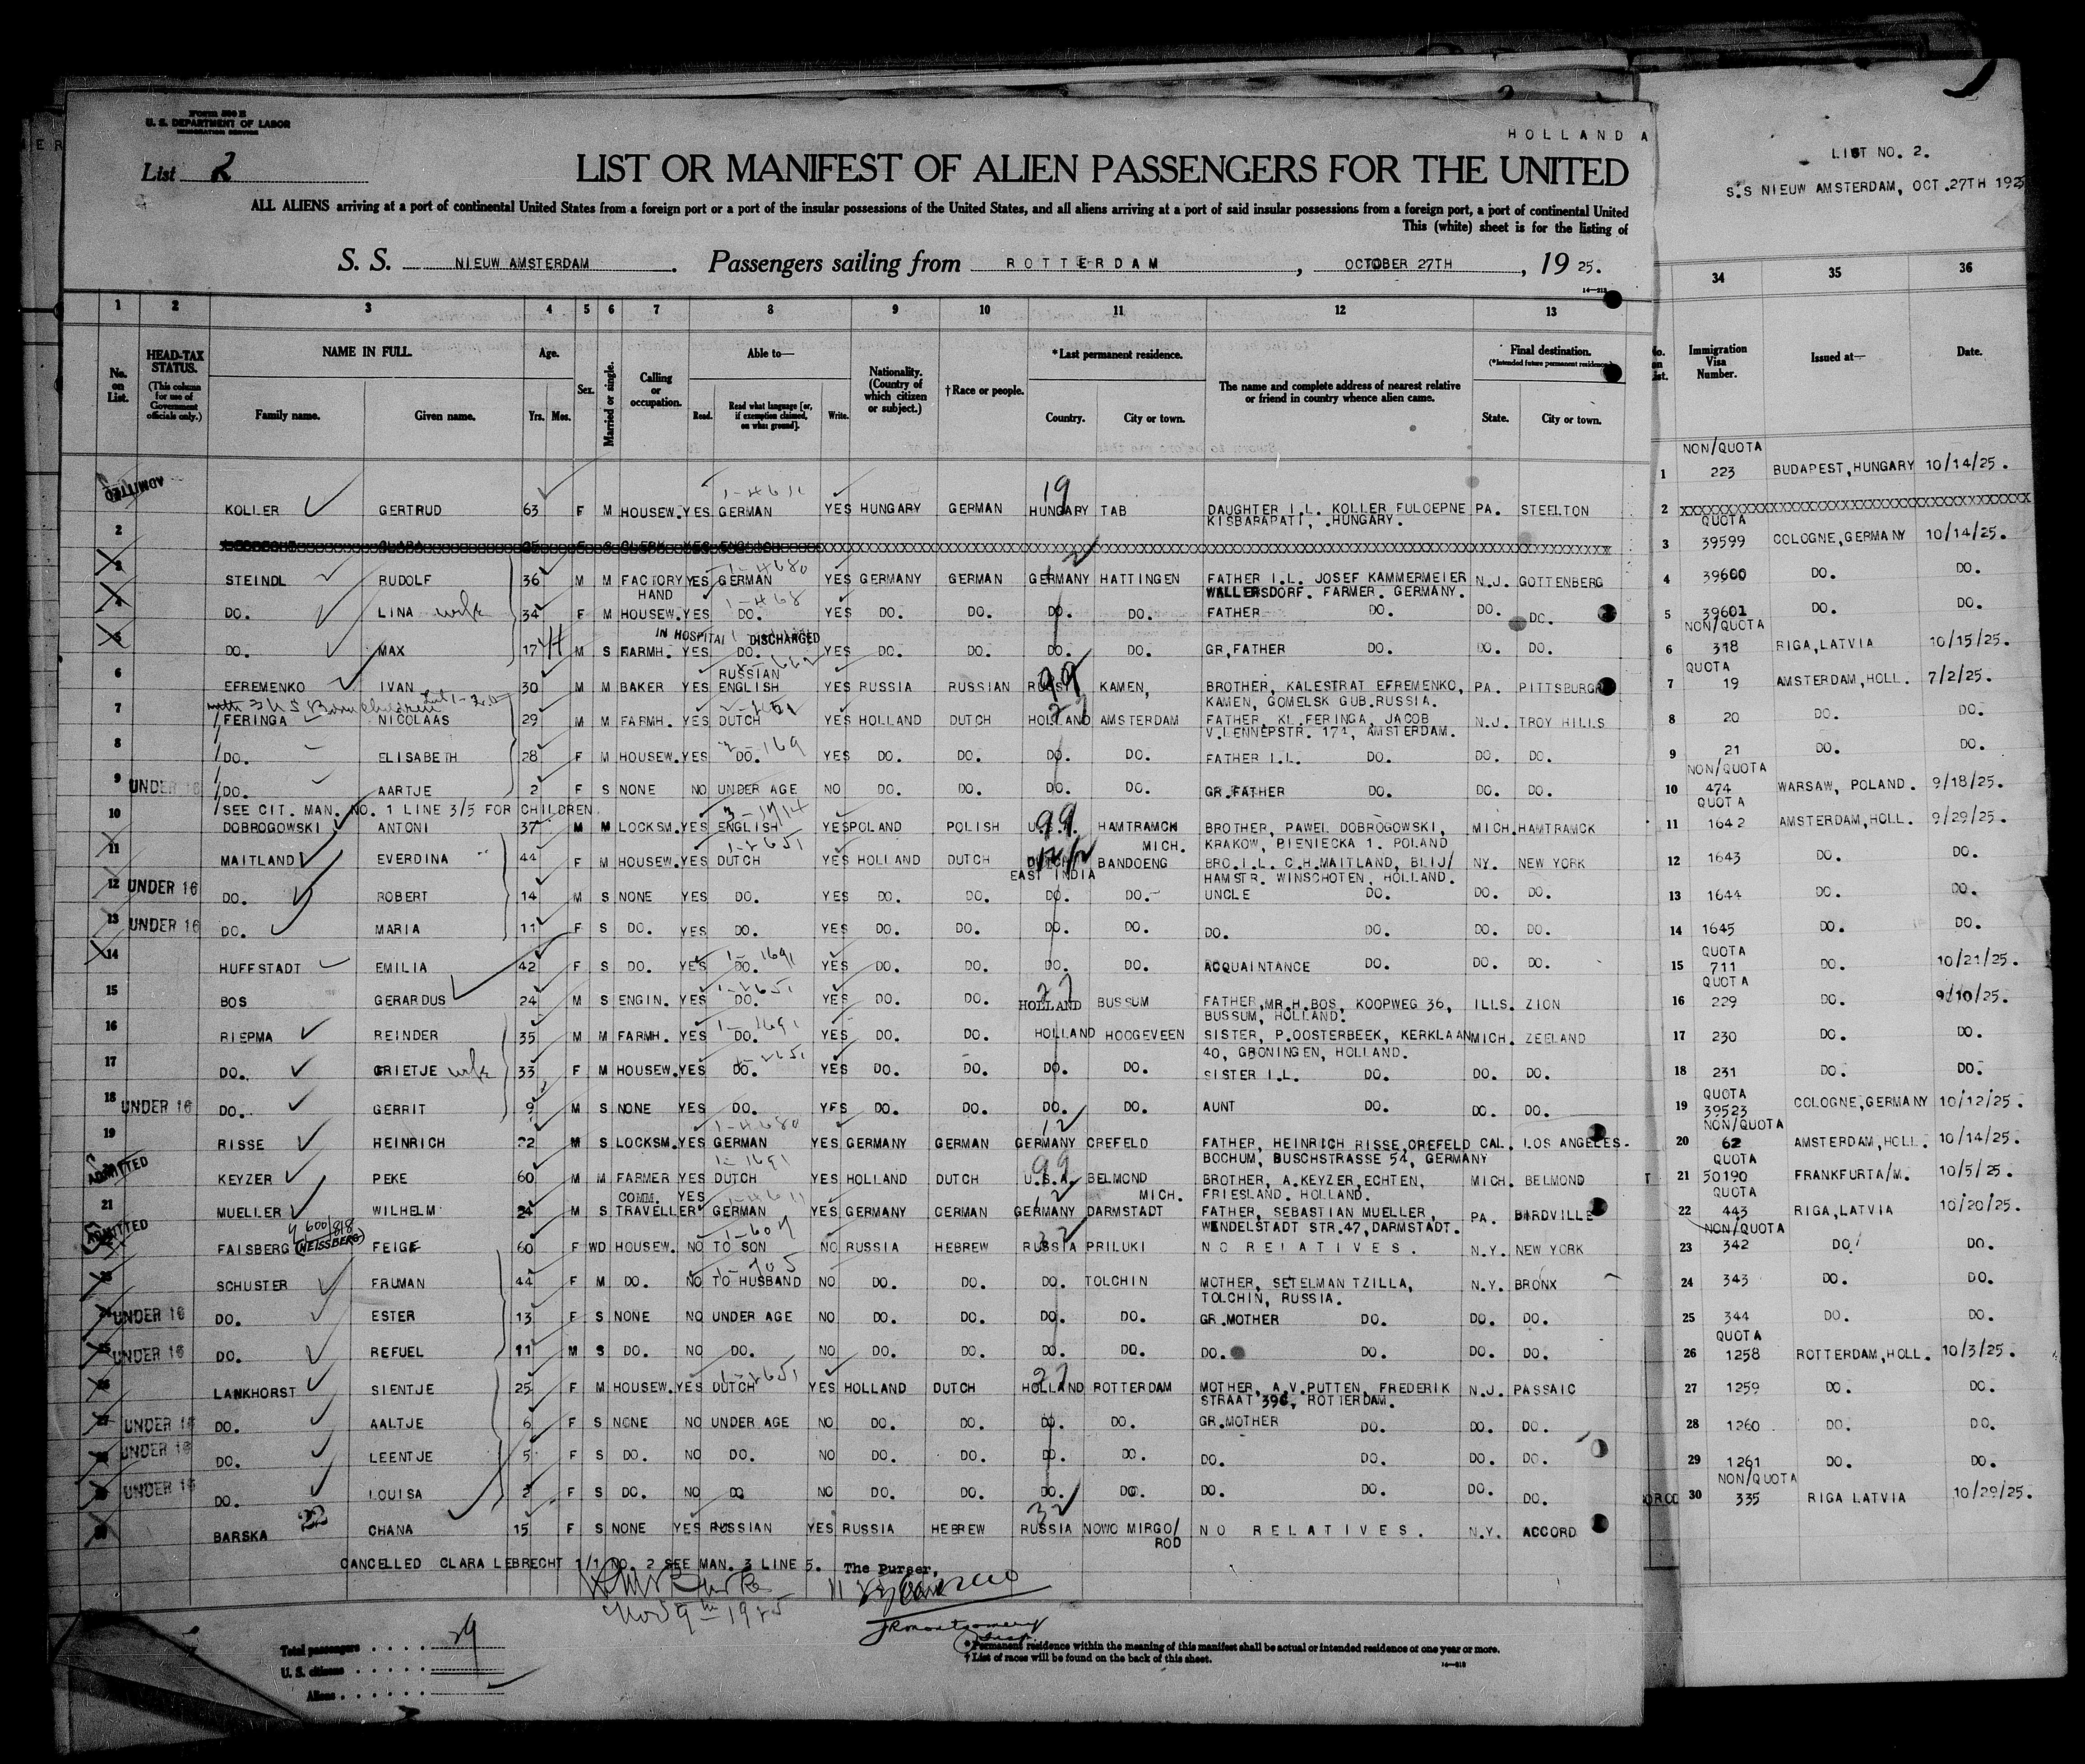 Form 500 B
U. S. DEPARTMENT OF LABOR
IMMIGRATION SERVICE
HOLLAND A
List 2
LIST OR MANIFEST OF ALIEN PASSENGERS FOR THE UNITED
ALL ALIENS arriving at a port of continental United States from a foreign port or a port of the insular possessions of the United States, and all aliens arriving at a port of said insular possessions from a foreign port, a port of continental United
This (white) sheet is for the listing of
S. S. NIEUW AMSTERDAM. Passengers sailing from ROTTERDAM, OCTOBER 27TH, 19 25.
LIST NO. 2.
S.S NIEUW AMSTERDAM, OCT.27TH 192
1 2 3 4 5 6 7 8 9 10 11 12 13
34 35 36
No. on List.
HEAD-TAX STATUS. (This column for use of Government officials only.)
NAME IN FULL. Family name. Given name.
Age. Yrs. Mos.
Sex.
Married or single.
Calling or occupation.
Able to— Read. Read what language [or, if exemption claimed, on what ground]. Write.
Nationality. (Country of which citizen or subject.)
†Race or people.
*Last permanent residence. Country. City or town.
The name and complete address of nearest relative or friend in country whence alien came.
Final destination. (*Intended future permanent residence) State. City or town.
Immigration Visa Number. Issued at— Date.
ADMITTED KOLLER GERTRUD 63 F M HOUSEW. YES GERMAN YES HUNGARY GERMAN HUNGARY TAB DAUGHTER I.L. KOLLER FULOEPNE PA. STEELTON
KISBARAPATI, .HUNGARY.
2
3 STEINDL RUDOLF 36 M M FACTORY YES GERMAN YES GERMANY GERMAN GERMANY HATTINGEN FATHER I.L. JOSEF KAMMERMEIER N.J. GOTTENBERG
HAND WALLERSDORF. FARMER. GERMANY.
4 DO. LINA wife 34 F M HOUSEW. YES DO. YES DO. DO. DO. DO. FATHER DO. DO. DO.
IN HOSPITAL DISCHARGED
5 DO. MAX 17 M S FARMH. YES DO. YES DO. DO. DO. DO. GR.FATHER DO. DO. DO.
RUSSIAN
6 EFREMENKO IVAN 30 M M BAKER YES ENGLISH YES RUSSIA RUSSIAN KAMEN, BROTHER, KALESTRAT EFREMENKO, PA. PITTSBURGH
KAMEN, GOMELSK GUB.RUSSIA.
7 FERINGA NICOLAAS 29 M M FARMH. YES DUTCH YES HOLLAND DUTCH HOLLAND AMSTERDAM FATHER, KL.FERINGA, JACOB N.J. TROY HILLS
V.LENNEPSTR. 171, AMSTERDAM.
8 DO. ELISABETH 28 F M HOUSEW. YES DO. YES DO. DO. DO. DO. FATHER I.L. DO. DO. DO.
9 UNDER 16 DO. AARTJE 2 F S NONE NO UNDER AGE NO DO. DO. DO. DO. GR.FATHER DO. DO. DO.
SEE CIT. MAN. NO. 1 LINE 3/5 FOR CHILDREN.
10 DOBROGOWSKI ANTONI 37 M M LOCKSM. YES ENGLISH YES POLAND POLISH HAMTRAMCK BROTHER, PAWEL DOBROGOWSKI, MICH. HAMTRAMCK
MICH. KRAKOW, BIENIECKA 1. POLAND
11 MAITLAND EVERDINA 44 F M HOUSEW. YES DUTCH YES HOLLAND DUTCH BANDOENG BRO.I.L. C.H.MAITLAND, BLIJ/ NY. NEW YORK
EAST INDIA HAMSTR. WINSCHOTEN, HOLLAND.
12 UNDER 16 DO. ROBERT 14 M S NONE YES DO. YES DO. DO. DO. DO. UNCLE DO. DO. DO.
13 UNDER 16 DO. MARIA 11 F S DO. YES DO. YES DO. DO. DO. DO. DO. DO. DO. DO.
14 HUFFSTADT EMILIA 42 F S DO. YES DO. YES DO. DO. DO. DO. ACQUAINTANCE DO. DO. DO.
15 BOS GERARDUS 24 M S ENGIN. YES DO. YES DO. DO. HOLLAND BUSSUM FATHER,MR.H.BOS, KOOPWEG 36, ILLS. ZION
BUSSUM, HOLLAND.
16 RIEPMA REINDER 35 M M FARMH. YES DO. YES DO. DO. HOLLAND HOOGEVEEN SISTER, P.OOSTERBEEK, KERKLAAN MICH. ZEELAND
40, GRONINGEN, HOLLAND.
17 DO. GRIETJE wife 33 F M HOUSEW. YES DO. YES DO. DO. DO. DO. SISTER I.L. DO. DO. DO.
18 UNDER 16 DO. GERRIT 9 M S NONE YES DO. YES DO. DO. DO. DO. AUNT DO. DO. DO.
19 RISSE HEINRICH 22 M S LOCKSM. YES GERMAN YES GERMANY GERMAN GERMANY CREFELD FATHER, HEINRICH RISSE,CREFELD CAL. LOS ANGELES.
BOCHUM, BUSCHSTRASSE 54, GERMANY
ADMITTED KEYZER PEKE 60 M M FARMER YES DUTCH YES HOLLAND DUTCH U.S.A. BELMOND BROTHER, A.KEYZER,ECHTEN, MICH. BELMOND
MICH. FRIESLAND. HOLLAND.
21 MUELLER WILHELM 24 M S COMM. TRAVELLER YES GERMAN YES GERMANY GERMAN GERMANY DARMSTADT FATHER, SEBASTIAN MUELLER, PA. BIRDVILLE
WENDELSTADT STR.47, DARMSTADT.
ADMITTED FAISBERG (WEISSBERG) FEIGE 60 F WD HOUSEW. NO TO SON NO RUSSIA HEBREW RUSSIA PRILUKI NO RELATIVES. N.Y. NEW YORK
23 SCHUSTER FRUMAN 44 F M DO. NO TO HUSBAND NO DO. DO. DO. TOLCHIN MOTHER, SETELMAN TZILLA, N.Y. BRONX
TOLCHIN, RUSSIA.
24 UNDER 16 DO. ESTER 13 F S NONE NO UNDER AGE NO DO. DO. DO. DO. GR.MOTHER DO. DO. DO.
25 UNDER 16 DO. REFUEL 11 M S DO. NO DO. NO DO. DO. DO. DO. DO. DO. DO. DO.
26 LANKHORST SIENTJE 25 F M HOUSEW. YES DUTCH YES HOLLAND DUTCH HOLLAND ROTTERDAM MOTHER, A.V.PUTTEN, FREDERIK N.J. PASSAIC
STRAAT 39C, ROTTERDAM.
27 UNDER 16 DO. AALTJE 6 F S NONE NO UNDER AGE NO DO. DO. DO. DO. GR.MOTHER DO. DO. DO.
UNDER 16 DO. LEENTJE 5 F S DO. NO DO. NO DO. DO. DO. DO. DO. DO. DO. DO.
UNDER 16 DO. LOUISA 2 F S DO. NO DO NO DO. DO. DO. DO. DO. DO. DO. DO.
BARSKA CHANA 15 F S NONE YES RUSSIAN YES RUSSIA HEBREW RUSSIA NOWO MIRGO/ NO RELATIVES. N.Y. ACCORD
ROD
CANCELLED CLARA LEBRECHT 1/1 NO. 2 SEE MAN. 3 LINE 5. The Purser,
Nov 9th 1925
Total passengers . . . . 29
U. S. citizens . . . . .
Aliens . . . . . .
* Permanent residence within the meaning of this manifest shall be actual or intended residence of one year or more.
† List of races will be found on the back of this sheet.
NON/QUOTA
1 223 BUDAPEST,HUNGARY 10/14/25.
2 XXXXXXXXXXXXXXXXXXXXXXXXXXXXXXXX
QUOTA
3 39599 COLOGNE,GERMANY 10/14/25.
4 39600 DO. DO.
5 39601 DO. DO.
NON/QUOTA
6 318 RIGA,LATVIA 10/15/25.
QUOTA
7 19 AMSTERDAM,HOLL. 7/2/25.
8 20 DO. DO.
9 21 DO. DO.
NON/QUOTA
10 474 WARSAW, POLAND. 9/18/25.
QUOTA
11 1642 AMSTERDAM,HOLL. 9/29/25.
12 1643 DO. DO.
13 1644 DO. DO.
14 1645 DO. DO.
QUOTA
15 711 DO. 10/21/25.
QUOTA
16 229 DO. 9/10/25.
17 230 DO. DO.
18 231 DO. DO.
QUOTA
19 39523 COLOGNE,GERMANY 10/12/25.
NON/QUOTA
20 62 AMSTERDAM,HOLL. 10/14/25.
QUOTA
21 50190 FRANKFURTA/M. 10/5/25.
QUOTA
22 443 RIGA,LATVIA 10/20/25.
NON/QUOTA
23 342 DO. DO.
24 343 DO. DO.
25 344 DO. DO.
QUOTA
26 1258 ROTTERDAM,HOLL. 10/3/25.
27 1259 DO. DO.
28 1260 DO. DO.
29 1261 DO. DO.
NON/QUOTA
30 335 RIGA LATVIA 10/29/25.